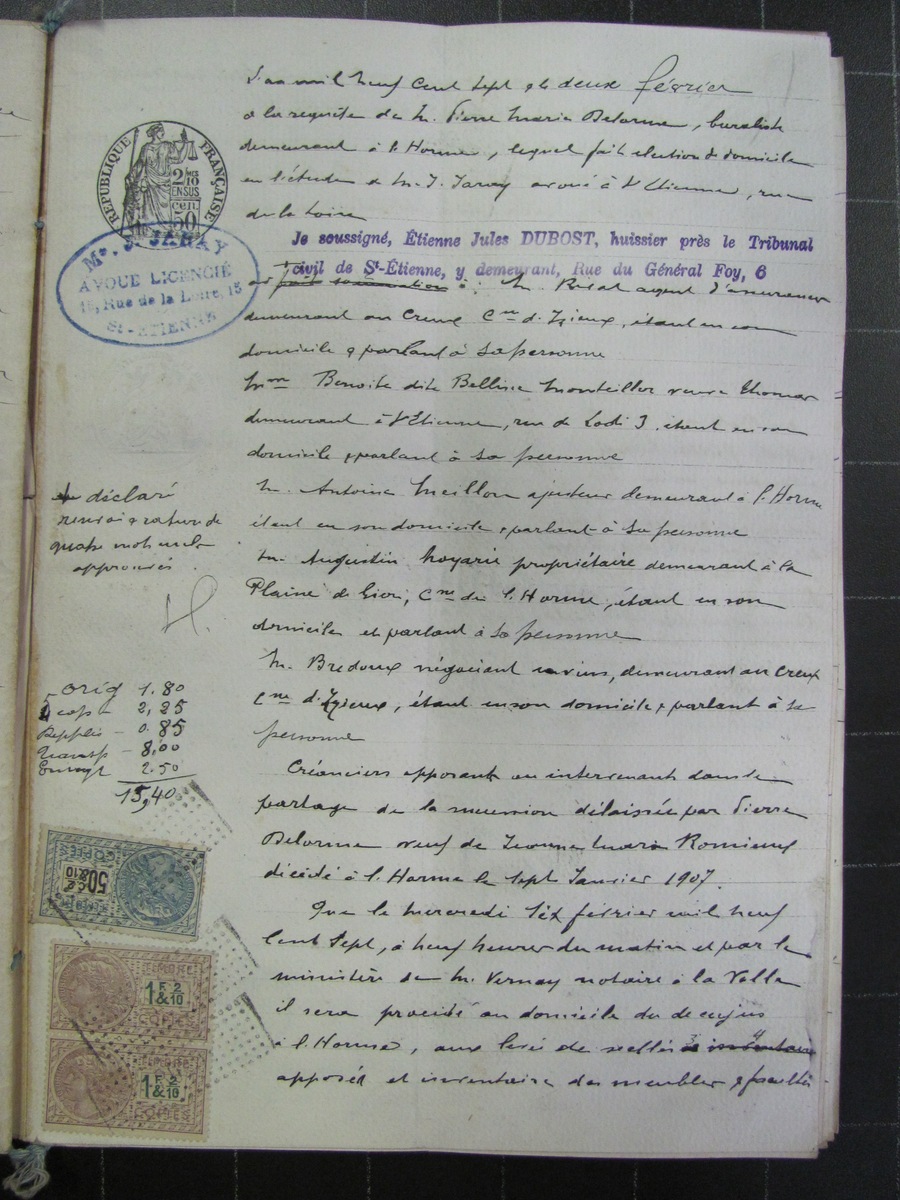 L'an mil neuf cent sept & le deux février
à la requête de M. Pierre Marie Delorme, buraliste
demeurant à l'Horme, lequel fait election de domicile
en l'étude de Me J. Jaray avoué à St Etienne, rue
de la Loire
RÉPUBLIQUE FRANÇAISE
2/10 EN SUS
50 cen.
Je soussigné, Étienne Jules DUBOST, huissier près le Tribunal
civil de St-Étienne, y demeurant, Rue du Général Foy, 6
Me. J. JARAY
AVOUÉ LICENCIÉ
15, Rue de la Loire, 15
St-ETIENNE
ai fait sommation à : M. agent d'assurances
demeurant au Creux Cne d'Izieux, étant en son
domicile & parlant à sa personne
Mme Benoite dite Bellina Monteiller veuve Thomas
demeurant à St Etienne, rue de Lodi 3, étant en son
domicile & parlant à sa personne
M. Antoine Meillon ajusteur demeurant à l'Horme
étant en son domicile & parlant à sa personne
M. Augustin hoyarie propriétaire demeurant à la
Plaine de Gier, Cne de l'Horme, étant en son
domicile et parlant à sa personne
M. Bredoux négociant en vins, demeurant au Creux
Cne d'Izieux, étant en son domicile & parlant à sa
personne
Créanciers opposants ou intervenants dans le
partage de la succession délaissée par Pierre
Delorme veuf de Jeanne Marie Romieux
décédé à l'Horme le sept Janvier 1907.
Que le mercredi février mil neuf
cent sept, à neuf heures du matin et par le
ministère de Me Vernay notaire à la Valla
il sera procédé au domicile du de cujus
à l'Horme, aux levée de scellés & inventaire
apposés et inventaire des meubles & facultés
déclaré
renvoi & rature de
quatre mots nuls
approuvés
orig 1.80
5 copies 2,25
0.85
Transp 8,00
Enregt 2.50
15,40
50c 2/10
COPIES
1F 2/10
COPIES
1F 2/10
COPIES